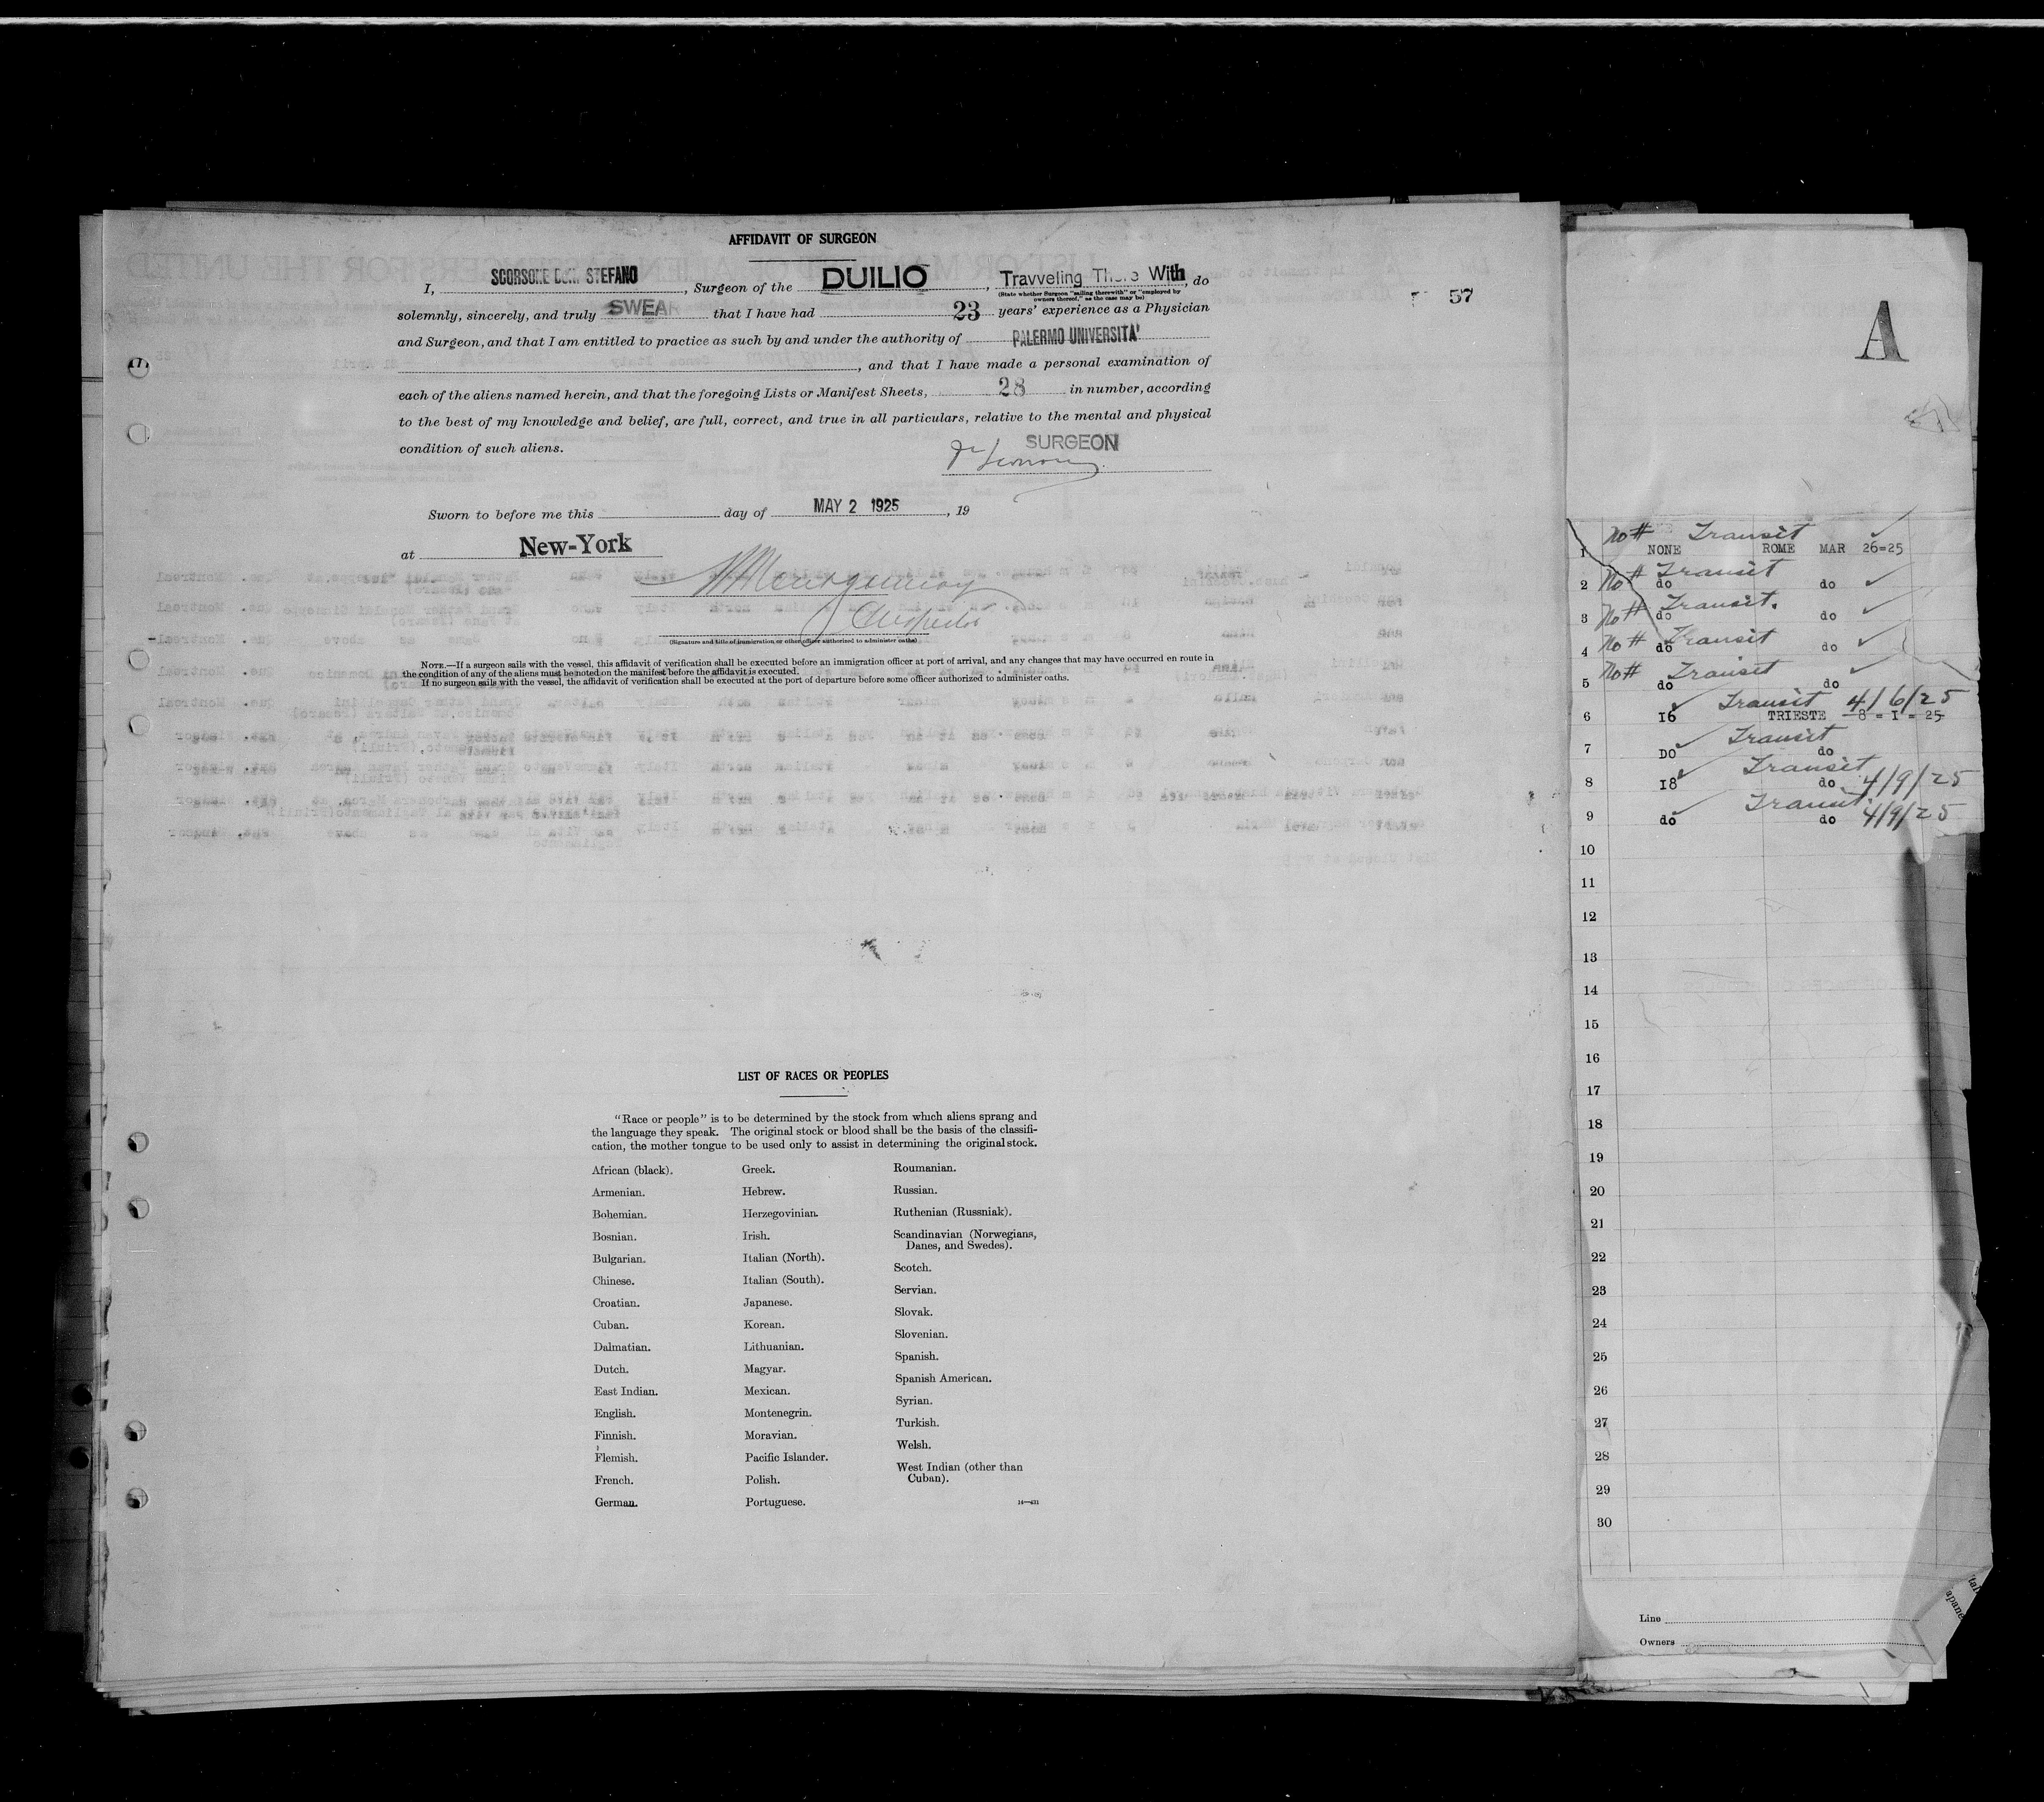 AFFIDAVIT OF SURGEON
I, SCORSONE DOTT STEFANO, Surgeon of the DUILIO, Travveling There With, do
(State whether Surgeon "sailing therewith" or "employed by
owners thereof," as the case may be)
solemnly, sincerely, and truly SWEAR that I have had 23 years' experience as a Physician
and Surgeon, and that I am entitled to practice as such by and under the authority of PALERMO UNIVERSITA'
, and that I have made a personal examination of
each of the aliens named herein, and that the foregoing Lists or Manifest Sheets, 28 in number, according
to the best of my knowledge and belief, are full, correct, and true in all particulars, relative to the mental and physical
condition of such aliens.
SURGEON
Sworn to before me this day of MAY 2 1925, 19
at New-York
Inspector
(Signature and title of immigration or other officer authorized to administer oaths)
NOTE.—If a surgeon sails with the vessel, this affidavit of verification shall be executed before an immigration officer at port of arrival, and any changes that may have occurred en route in
the condition of any of the aliens must be noted on the manifest before the affidavit is executed.
If no surgeon sails with the vessel, the affidavit of verification shall be executed at the port of departure before some officer authorized to administer oaths.
LIST OF RACES OR PEOPLES
"Race or people" is to be determined by the stock from which aliens sprang and
the language they speak. The original stock or blood shall be the basis of the classifi-
cation, the mother tongue to be used only to assist in determining the original stock.
African (black).
Armenian.
Bohemian.
Bosnian.
Bulgarian.
Chinese.
Croatian.
Cuban.
Dalmatian.
Dutch.
East Indian.
English.
Finnish.
Flemish.
French.
German.
Greek.
Hebrew.
Herzegovinian.
Irish.
Italian (North).
Italian (South).
Japanese.
Korean.
Lithuanian.
Magyar.
Mexican.
Montenegrin.
Moravian.
Pacific Islander.
Polish.
Portuguese.
Roumanian.
Russian.
Ruthenian (Russniak).
Scandinavian (Norwegians,
Danes, and Swedes).
Scotch.
Servian.
Slovak.
Slovenian.
Spanish.
Spanish American.
Syrian.
Turkish.
Welsh.
West Indian (other than
Cuban).
57
A
No # Transit
1 NONE ROME MAR 26=25
No # Transit
2 do do
No # Transit.
3 do do
No # Transit
4 do do
No # Transit
5 do do
Transit 4/6/25
6 16 TRIESTE 8 = I = 25
Transit
7 DO do
Transit
8 18 do 4/9/25
Transit
9 do do 4/9/25
10
11
12
13
14
15
16
17
18
19
20
21
22
23
24
25
26
27
28
29
30
Line
Owners